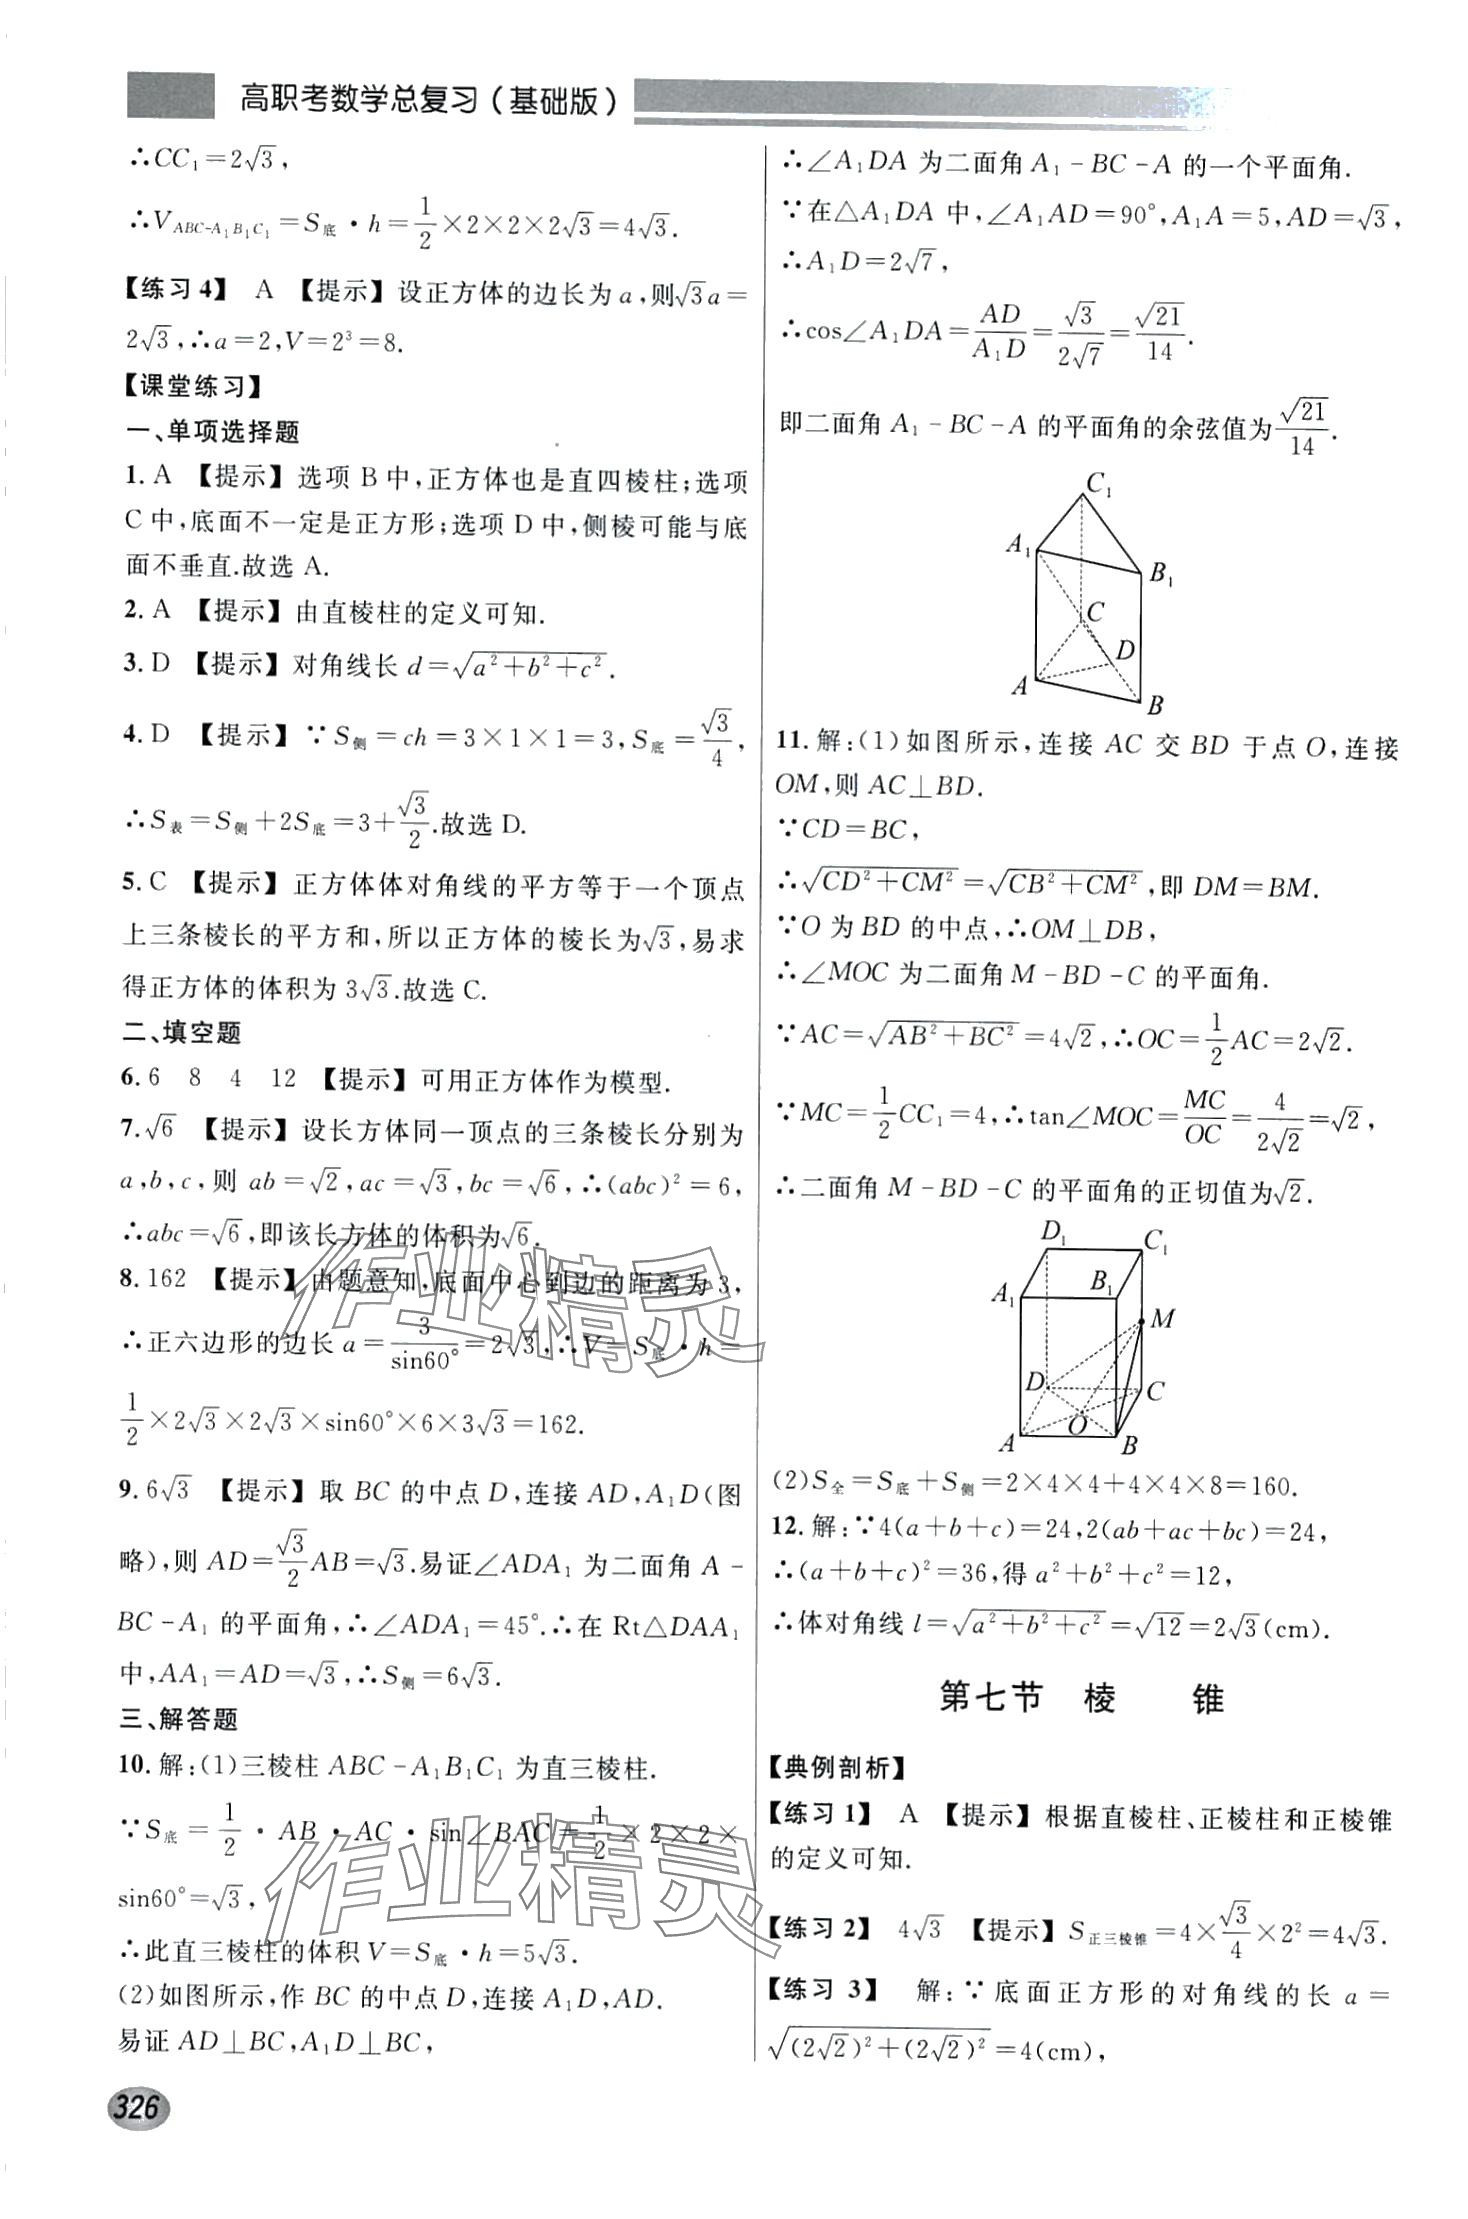 高职考数学总复习（基础版）
∴CC₁=2√3,
∴V_{ABC-A₁B₁C₁}=S底·h=1/2×2×2×2√3=4√3.
【练习4】 A 【提示】设正方体的边长为a,则√3a=
2√3,∴a=2,V=2³=8.
【课堂练习】
一、单项选择题
1. A 【提示】选项B中,正方体也是直四棱柱;选项
C中,底面不一定是正方形;选项D中,侧棱可能与底
面不垂直.故选A.
2. A 【提示】由直棱柱的定义可知.
3. D 【提示】对角线长 d=√(a²+b²+c²).
4. D 【提示】∵S侧=ch=3×1×1=3,S底=√3/4,
∴S表=S侧+2S底=3+√3/2.故选D.
5. C 【提示】正方体体对角线的平方等于一个顶点
上三条棱长的平方和,所以正方体的棱长为√3,易求
得正方体的体积为3√3.故选C.
二、填空题
6. 6 8 4 12 【提示】可用正方体作为模型.
7. √6 【提示】设长方体同一顶点的三条棱长分别为
a,b,c,则ab=√2,ac=√3,bc=√6,∴(abc)²=6,
∴abc=√6,即该长方体的体积为√6.
8. 162 【提示】由题意知,底面中心到边的距离为3,
∴正六边形的边长a=3/sin60°=2√3,∴V=S底·h=
1/2×2√3×2√3×sin60°×6×3√3=162.
9. 6√3 【提示】取BC的中点D,连接AD,A₁D(图
略),则AD=√3/2AB=√3.易证∠ADA₁为二面角A-
BC-A₁的平面角,∴∠ADA₁=45°.∴在Rt△DAA₁
中,AA₁=AD=√3,∴S侧=6√3.
三、解答题
10. 解:(1)三棱柱ABC-A₁B₁C₁为直三棱柱.
∵S底=1/2·AB·AC·sin∠BAC=1/2×2×2×
sin60°=√3,
∴此直三棱柱的体积V=S底·h=5√3.
(2)如图所示,作BC的中点D,连接A₁D,AD.
易证AD⊥BC,A₁D⊥BC,
326
∴∠A₁DA为二面角A₁-BC-A的一个平面角.
∵在△A₁DA中,∠A₁AD=90°,A₁A=5,AD=√3,
∴A₁D=2√7,
∴cos∠A₁DA=AD/A₁D=√3/2√7=√21/14.
即二面角A₁-BC-A的平面角的余弦值为√21/14.
C₁
A₁
B₁
C
D
A
B
11. 解:(1)如图所示,连接AC交BD于点O,连接
OM,则AC⊥BD.
∵CD=BC,
∴√(CD²+CM²)=√(CB²+CM²),即DM=BM.
∵O为BD的中点,∴OM⊥DB,
∴∠MOC为二面角M-BD-C的平面角.
∵AC=√(AB²+BC²)=4√2,∴OC=1/2AC=2√2.
∵MC=1/2CC₁=4,∴tan∠MOC=MC/OC=4/2√2=√2,
∴二面角M-BD-C的平面角的正切值为√2.
D₁
C₁
A₁
B₁
M
D
C
O
A
B
(2)S全=S底+S侧=2×4×4+4×4×8=160.
12. 解:∵4(a+b+c)=24,2(ab+ac+bc)=24,
∴(a+b+c)²=36,得a²+b²+c²=12,
∴体对角线l=√(a²+b²+c²)=√12=2√3(cm).
第七节 棱 锥
【典例剖析】
【练习1】 A 【提示】根据直棱柱、正棱柱和正棱锥
的定义可知.
【练习2】 4√3 【提示】S正三棱锥=4×√3/4×2²=4√3.
【练习3】 解:∵底面正方形的对角线的长a=
√((2√2)²+(2√2)²)=4(cm),
作业精灵
作业精灵